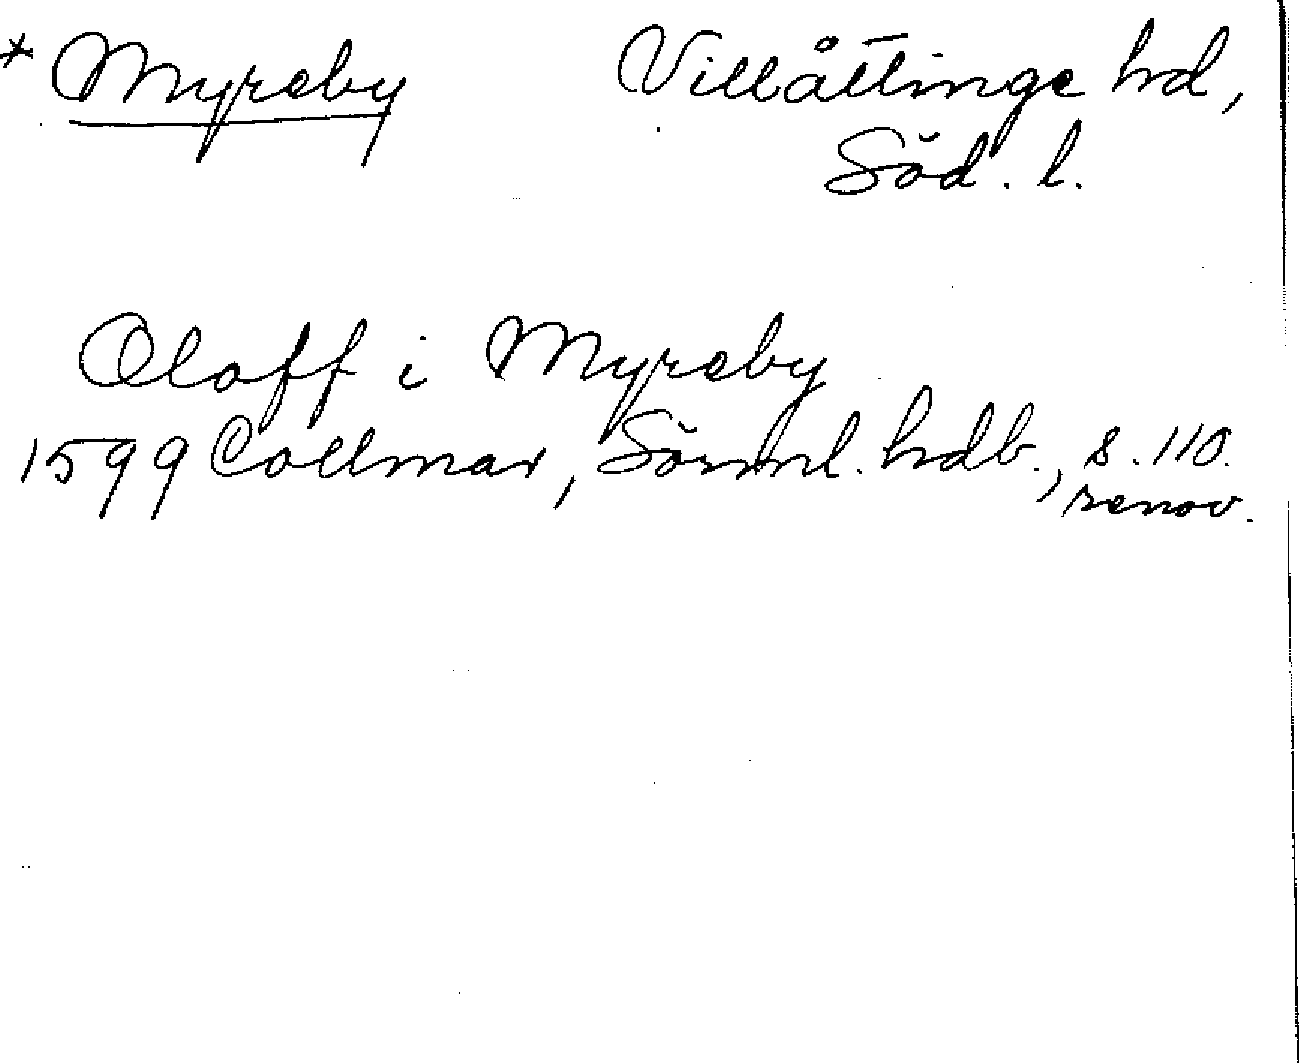 * Myreby Villåttinge hd,
Söd. l.
Oloff i Myreby
1599 Collmar, Sörml. hdb., s. 110.
renov.